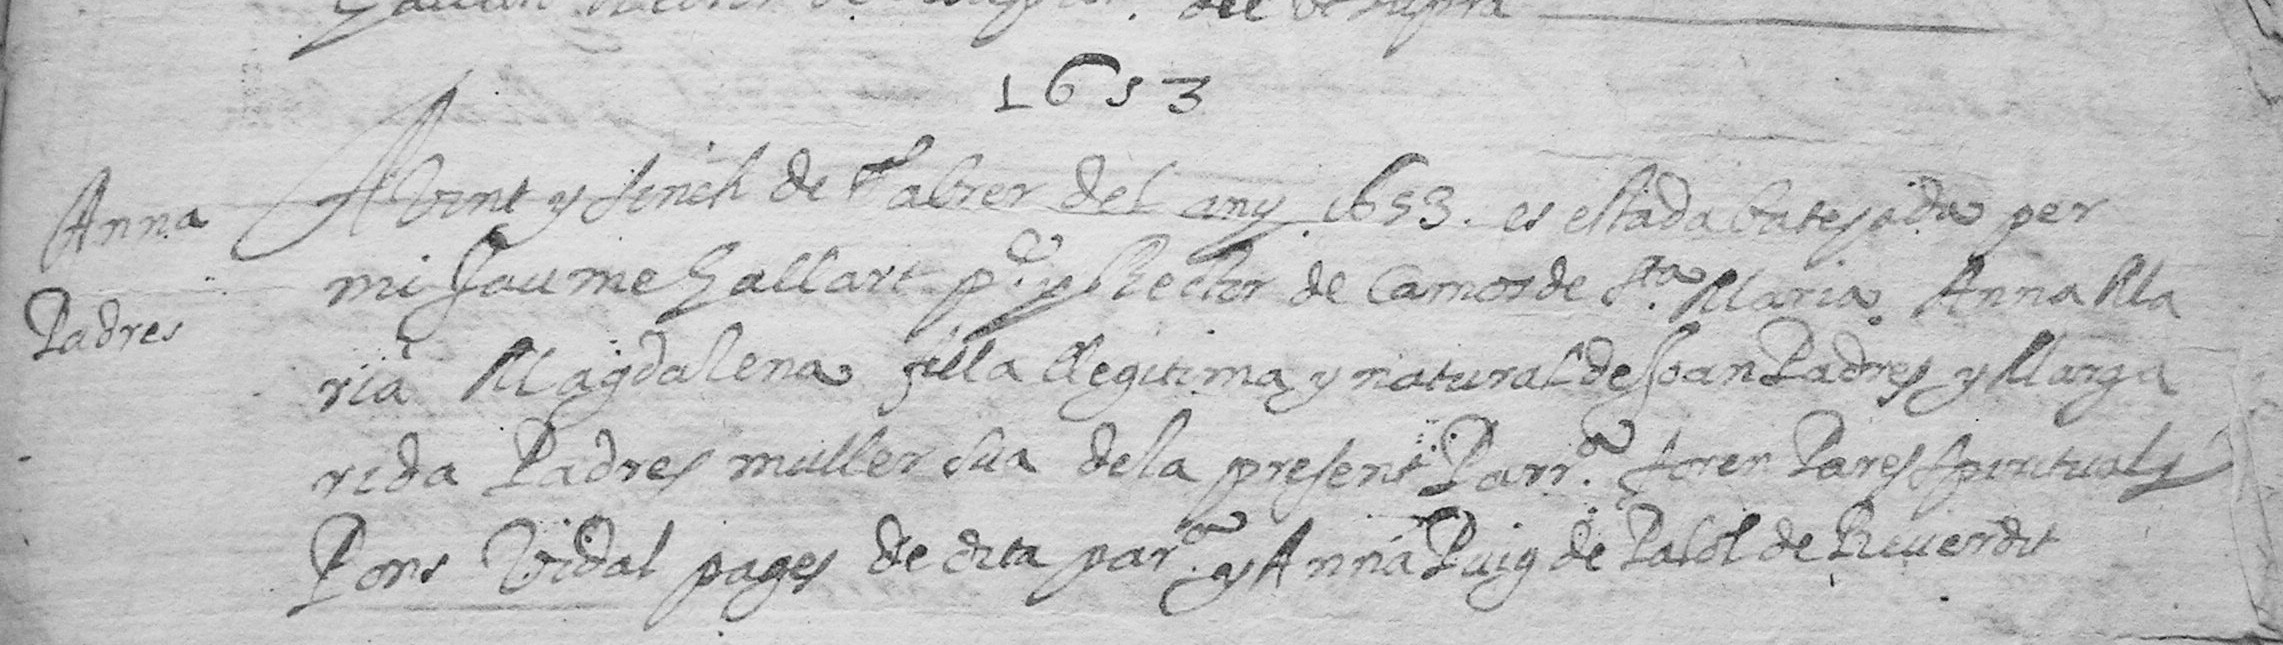 die ut supra
1653
Anna
Padres
A Vint y sinch de Fabrer del any 1653. es estada batejada per
mi Jaume Gallart p.re y Rector de Camos de S.ta Maria Anna Ma
ria Magdalena filla llegitima y natural de Joan Padres y Marga
rida Padres muller sua de la present Parr.a foren Pares Spirituals
Pons Vidal pages de dita par.a y Anna Puig de Palol de Reuerdit